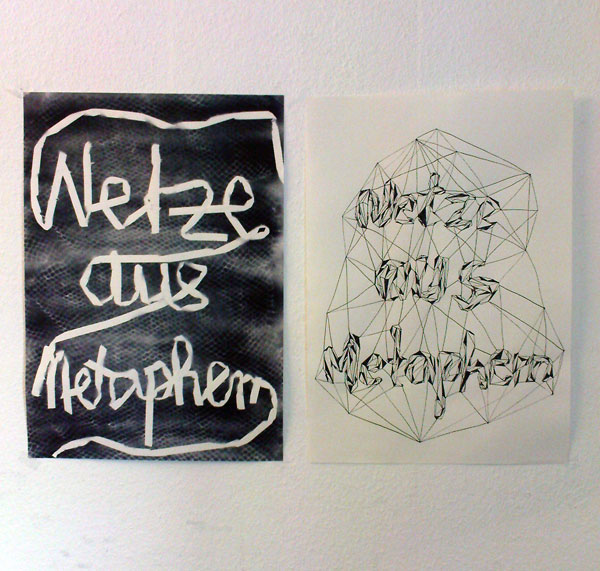 Netze
aus
Metaphern
Netze
aus
Metaphern